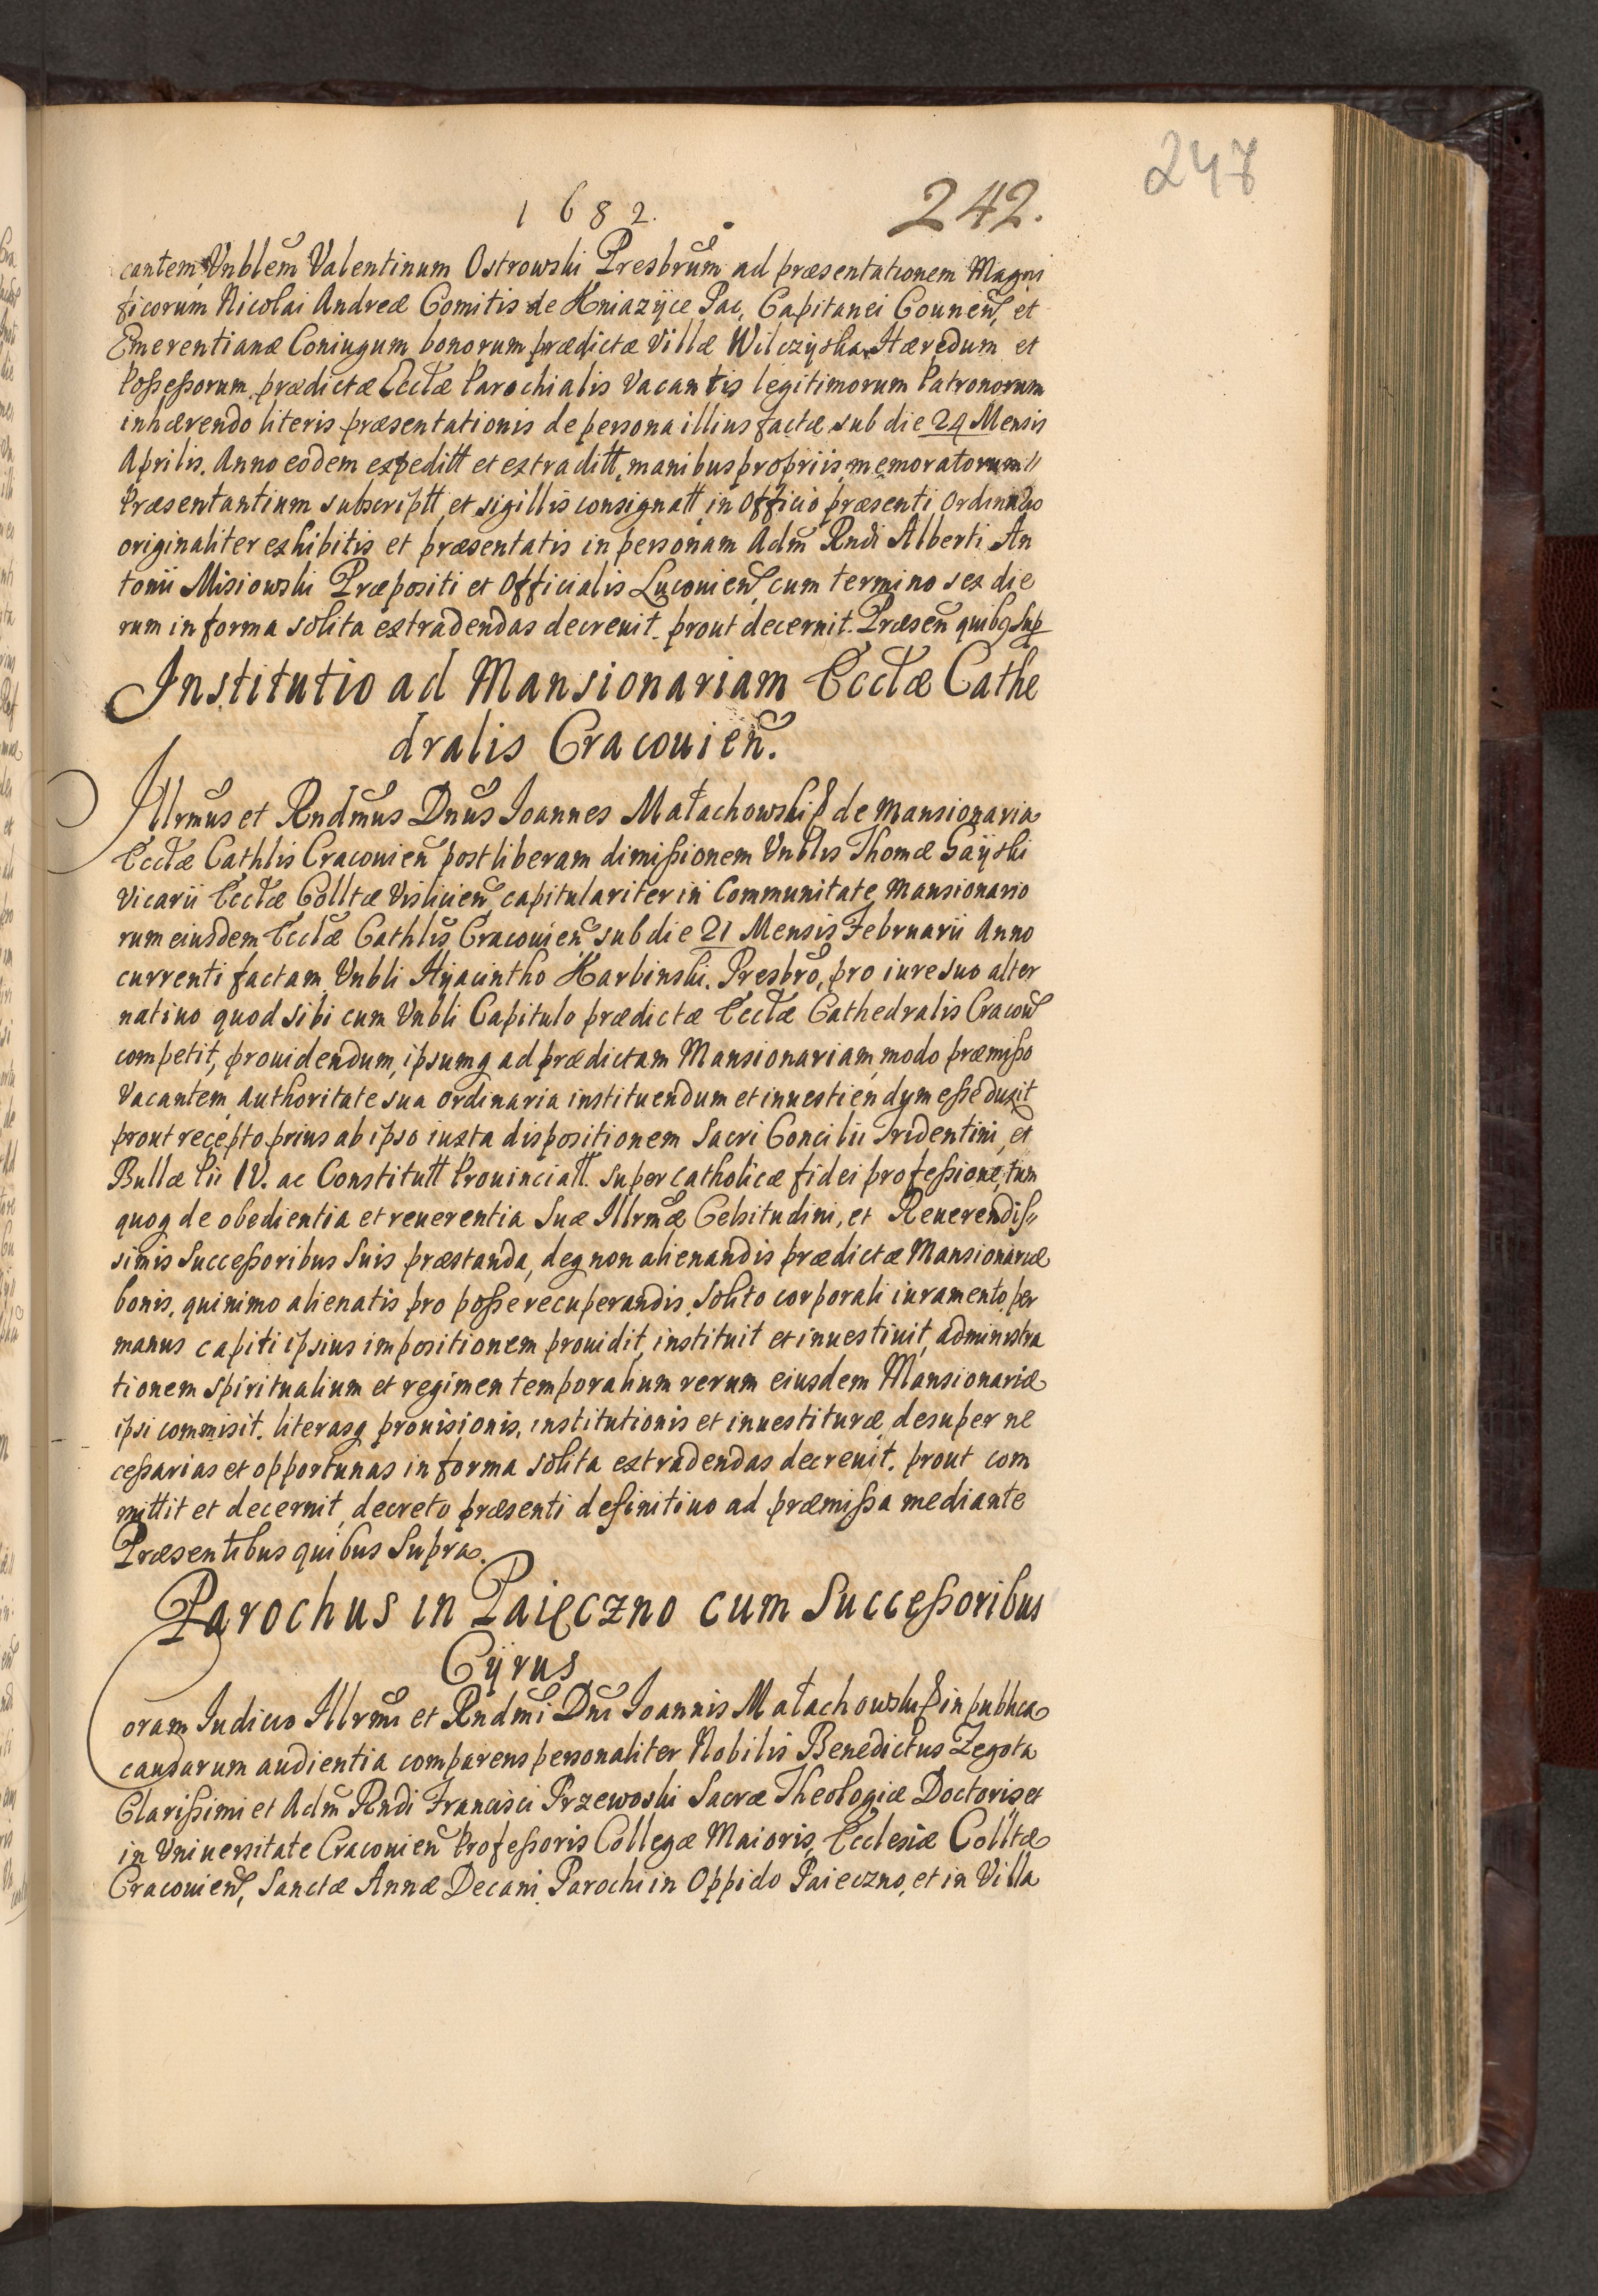 248
1682. 242.
cantem Vnblem̃ Valentinum Ostrowski Presbrum̃ ad præsentationem Magni
ficorum Nicolai Andreæ Comitis de Kniazÿce Pac, Capitanei Counien̄, et
Emerentianæ Coniugum bonorum prædictæ Villæ Wilczyska Hæredum et
Possessorum, prædictæ Ecctæ Parochialis Vacantis legitimorum Patronorum
inhærendo literis præsentationis de persona illius factæ sub die 24 Mensis
Aprilis. Anno eodem expeditt et extraditt, manibus propriis memoratorum
Præsentantium subscriptt et sigillis consignatt in Officio præsenti Ordinario
originaliter exhibitis et præsentatis in personam Adm̃ Rndi Alberti An
tonii Misiowski Præpositi et Officialis Lucouien̄ cum termino sex die
rum in forma solita extradendas decreuit prout decernit. Præsen̄ quibg sup
Institutio ad Mansionariam Ecctæ Cathe
dralis Cracouien̄.
Illrmus et Rndmus Dnus Joannes Małachowski de Mansionaria
Ecctæ Cathlis Cracouien̄ post liberam dimissionem Vnblis Thomæ Gaÿski
Vicarii Ecctæ Colltæ Visliciен̄ capitulariter in Communitate Mansionario
rum eiusdem Ecctæ Cathlis Cracouien̄ sub die 21 Mensis Februarii Anno
currenti factam Vnbli Hÿacintho Karbinski Presbrõ, pro iure suo alter
natiuo quod sibi cum Vnbli Capitulo prædictæ Ecctæ Cathedralis Cracou̅
competit, prouidendum, ipsumq ad prædictam Mansionariam, modo præmisso
Vacantem Authoritate sua ordinaria instituendum et inuestiendum esse duxit
prout recepto prius ab ipso iuxta dispositionem Sacri Concilii Tridentini, et
Bullæ Pii IV. ac Constitutt Prouinciatt. super catholicæ fidei professione, tum
quoq de obedientia et reuerentia Suæ Illrmæ Celsitudini, et Reuerendis
simis Successoribus Suis præstanda, deq non alienandis prædictæ Mansionariæ
bonis, quinimo alienatis pro posse recuperandis, solito corporali iuramento, per
manus capiti ipsius impositionem prouidit, instituit et inuestiuit, administra
tionem spiritualium et regimen temporalium rerum eiusdem Mansionariæ
ipsi commisit. literasq prouisionis, institutionis et inuestituræ, desuper ne
cessarias et opportunas in forma solita extradendas decreuit. prout com
mittit et decernit, decreto præsenti definitiuo ad præmissa mediante
Præsentibus quibus Supra.
Parochus in Paięczno cum Successoribus
Cÿrus
Coram Iudicio Illrmi et Rndmi Dni Joannis Małachowski in publica
causarum audientia comparens personaliter Nobilis Benedictus Zegota
Clarissimi et Adm̃ Rndi Francisci Przewoski Sacræ Theologiæ Doctoris et
in Vniuersitate Cracouien̄ Professoris Collegæ Maioris, Ecclesiæ Colltæ
Cracouien̄, Sanctæ Annæ Decani Parochi in Oppido Paieczno, et in Villa